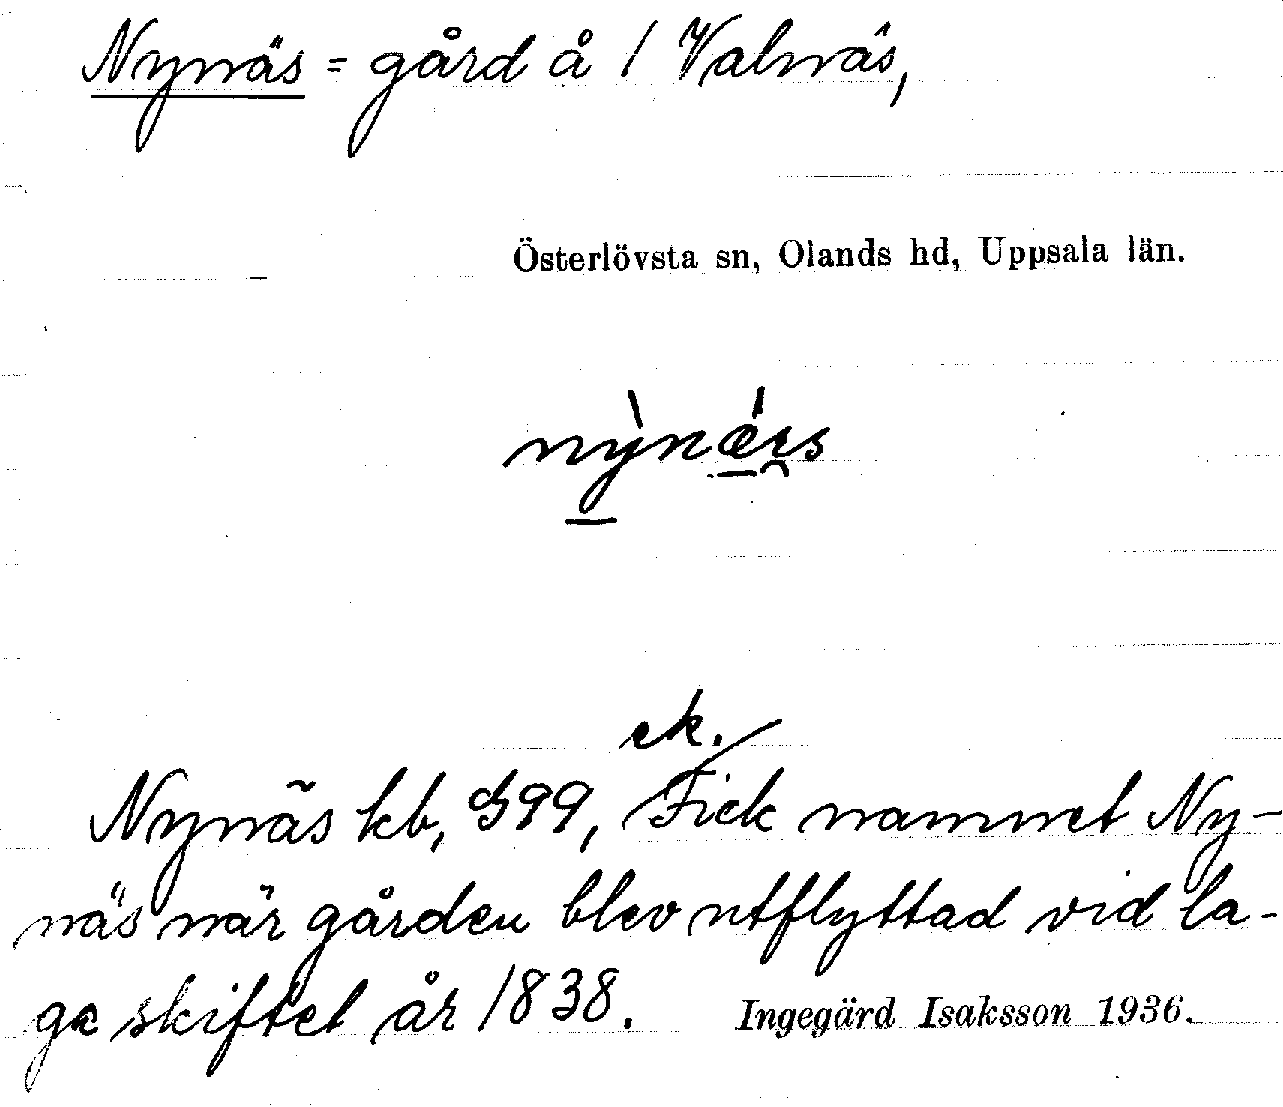 Nynäs = gård å 1 Valnäs,
Österlövsta sn, Olands hd, Uppsala län.
nỳnǽ̠ɛ̯s
ek.
Nynäs kb, 399, Fick namnet Ny-
näs när gården blev utflyttad vid la-
ge skiftet år 1838. Ingegärd Isaksson 1936.